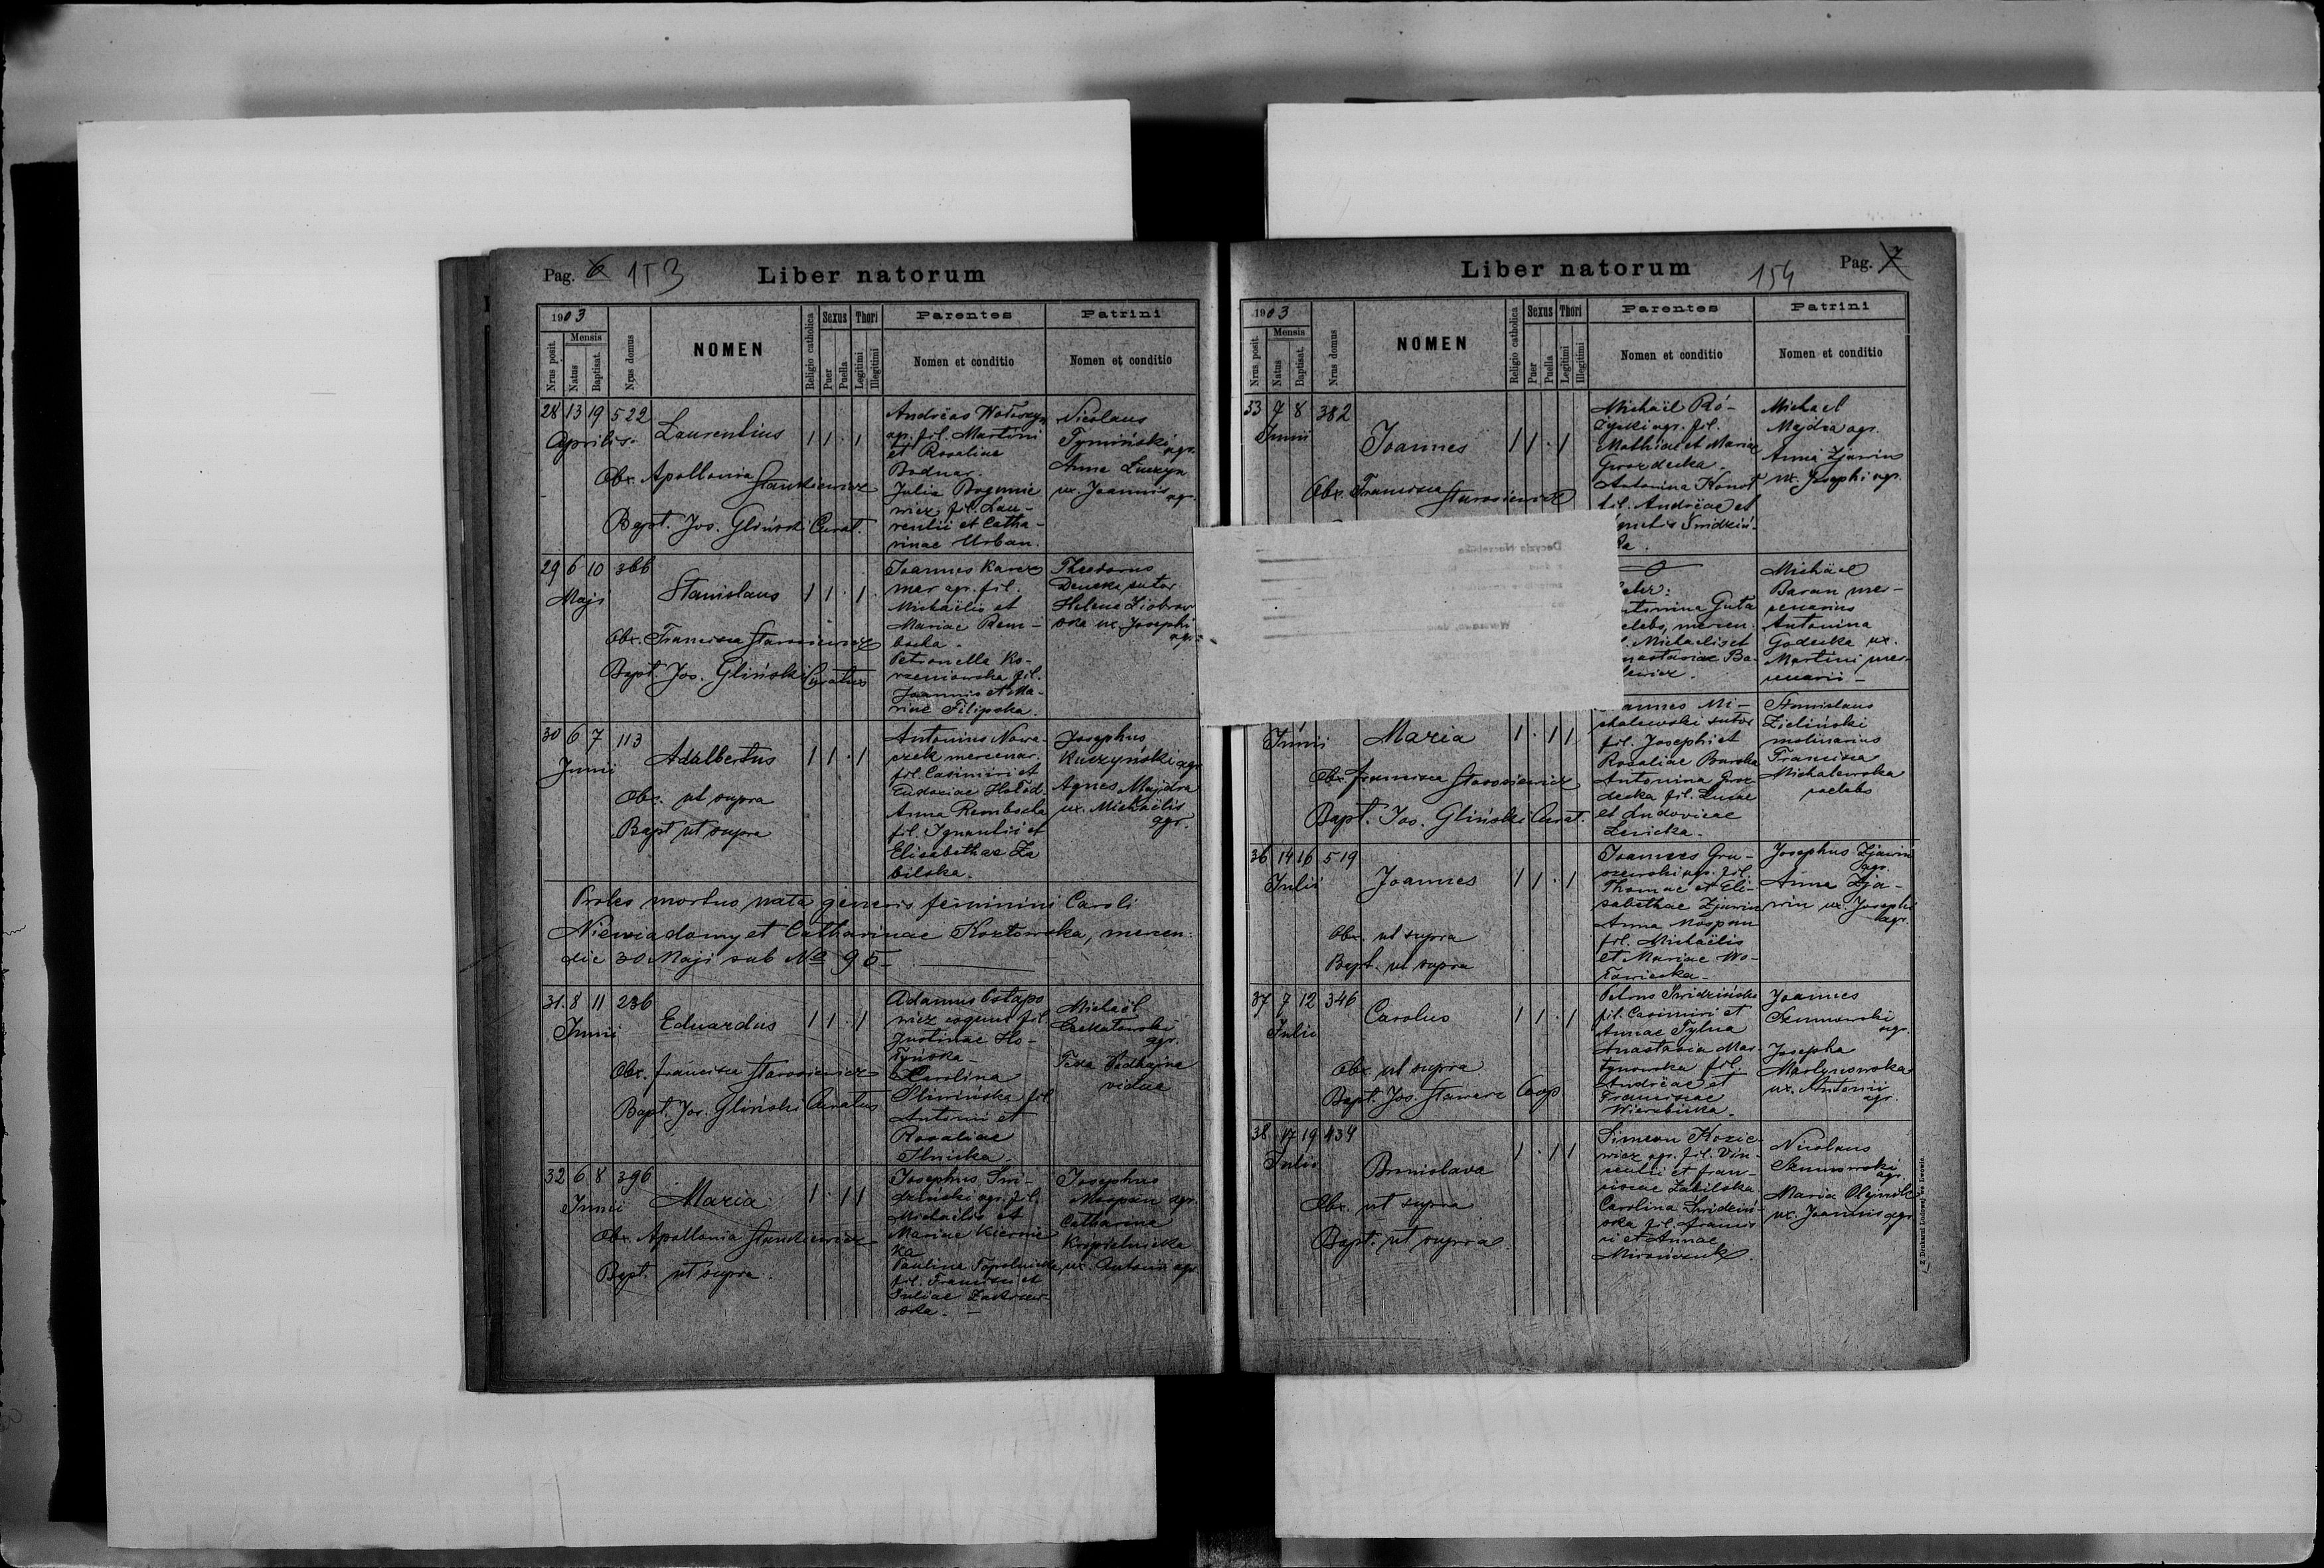 Pag. 6 153 Liber natorum
1903
Nrus posit.
Mensis
Natus
Baptisat.
Nrus domus
NOMEN
Religio catholica
Sexus
Puer
Puella
Thori
Legitimi
Illegitimi
Parentes
Nomen et conditio
Patrini
Nomen et conditio
28 13 19 522
Aprilis
Laurentius 1 1 · 1
Obx. Apollonia Stankiewicz
Bapt. Jos. Gliński Curat.
Andreas Wołoszyn
agr. fil. Martini
et Rosaliae
Bodnar.
Julia Bogunie
wicz fil. Lau-
rentii et Catha-
rinae Urban.
Nicolaus
Tymiński agr.
Anna
ux. Joannis agr.
29 6 10 366
Maji
Stanislaus 1 1 · 1
Obx. Francisca Starosiewicz
Bapt. Jos. Gliński Curatus
Joannes Karcz
mar agr. fil.
Michaëlis et
Mariae Rem-
bocha.
Petronella Ko-
rzeniowska fil.
Joannis et Ma-
riae Filipska.
Theodorus
sutor
Helena Ziobrow
ska ux. Josephi
agr.
30 6 7 113
Junii
Adalbertus 1 1 · 1
Obx. ut supra
Bapt ut supra
Antonius Nowa-
czek mercenar.
fil. Casimiri et
Eudoxiae
Anna Rembocha
fil. Ignantii et
Elisabethae Za
bilska.
Josephus
Kuczyński agr
Agnes Majdra
ux. Michaëlis
agr.
Proles mortua nata generis feminini Caroli
Niewiadomy et Catharinae Kozłowska, mercen.
die 30 Maji sub No 95
31. 8 11 236
Junii
Eduardus 1 1 · 1
Obx. Francisca Starosiewicz
Bapt. Jos. Gliński Curatus
Adamus Ostapo
wicz fil
Justinae Ho-
łyńska -
Carolina
Śliwińska fil
Antonii et
Rosaliae
Ilnicka.
Michaël
agr.
Tekla Podhajna
vidua
32 6 8 396
Junii
Maria 1 · 1 1
Obx. Apollonia Stankiewicz
Bapt. ut supra.
Josephus Świ-
dziński agr. fil.
Michaëlis et
Mariae Kiernic
ka
Paulina Topolnicka
fil. Francisci et
Juliae Zakrzew-
ska. -
Josephus
Mospan agr.
Catharina
Kropielnicka
ux. Antonii agr
Liber natorum 154 Pag. 7
1903
Nrus posit.
Mensis
Natus
Baptisat.
Nrus domus
NOMEN
Religio catholica
Sexus
Puer
Puella
Thori
Legitimi
Illegitimi
Parentes
Nomen et conditio
Patrini
Nomen et conditio
33 7 8 382
Junii
Joannes 1 1 · 1
Obx. Francisca Starosiewicz
Michaël Ró-
życki agr. fil.
Mathiae et Mariae
Grozdecka.
Antonina
fil. Andreae et
Świdziń-
Michael
Majdra agr.
Anna Zjawin
ux. Josephi agr.
Guta
mercen.
Michaelis et
Ba-
Michaël
Baran mer-
cenarius
Antonina
Godecka ux.
Martini mer-
cenarii -
Junii
Maria 1 · 1 1
Obx. Francisca Starosiewicz
Bapt. Jos. Gliński Curat.
Mi-
chalewski sutor
fil. Josephi et
Rosaliae Burska
Antonina Groz
decka fil. Lucae
et Ludovicae
Lewicka.
Stanislaus
Zieliński
molinarius
Francisca
Michalewska
coelebs
36 14 16 519
Julii
Joannes 1 1 · 1
Obx. ut supra
Bapt. ut supra
Joannes Gru-
szewski agr. fil.
Thomae et Eli-
sabethae Zjawin
Anna Mospan
fil. Michaëlis
et Mariae Wo-
ławiecka -
Josephus Zjawin
agr.
Anna Zja-
win ux. Josephi
agr.
37 7 12 346
Julii
Carolus 1 1 · 1
Obx. ut supra
Bapt. Jos. Coop
Petrus Świdziński
fil. Casimiri et
Annae Tylna
Anastasia Mar-
tynowska fil.
Andreae et
Franciscae
Wierzbicka.
Joannes
Szumowski
agr.
Josepha
Martynowska
ux. Antonii
agr.
38 17 19 434
Julii
Bronislava 1 · 1 1
Obx. ut supra
Bapt. ut supra.
Simeon Kozie-
wicz agr. fil. Vin-
centii et Fran-
ciscae Zabilska
Carolina Świdziń-
ska fil. Francis
ci et Annae
Mirończuk.
Nicolaus
Szumowski
agr.
Maria Olejnik
ux. Joannis agr
Z Drukarni Ludowej we Lwowie.